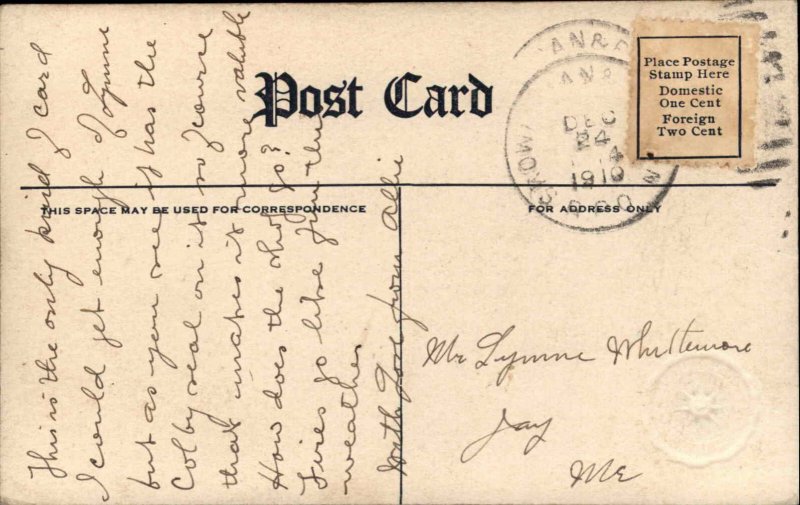 Post Card
Place Postage
Stamp Here
Domestic
One Cent
Foreign
Two Cent
DEC
24
1910
THIS SPACE MAY BE USED FOR CORRESPONDENCE
FOR ADDRESS ONLY
This is the only kind of card
I could get enough of Lynne
but as you see it has the
Colby seal on it so of course
that makes it more valuable
How does the go?
Fires go like fun this
weather.
With Love from Allie
Mr Lynne Whittemore
Jay
Me